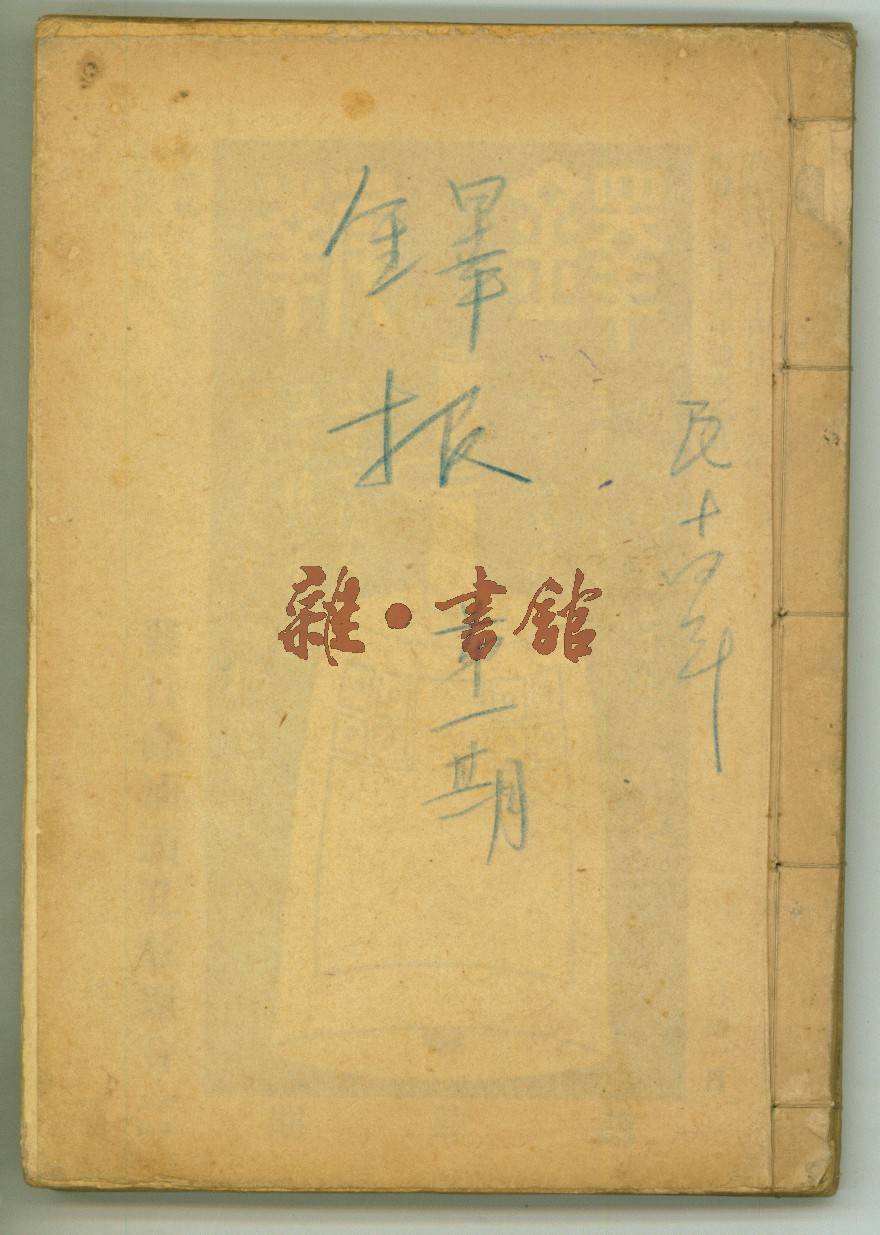 民十四年
鐸报
第一期
雜·書館